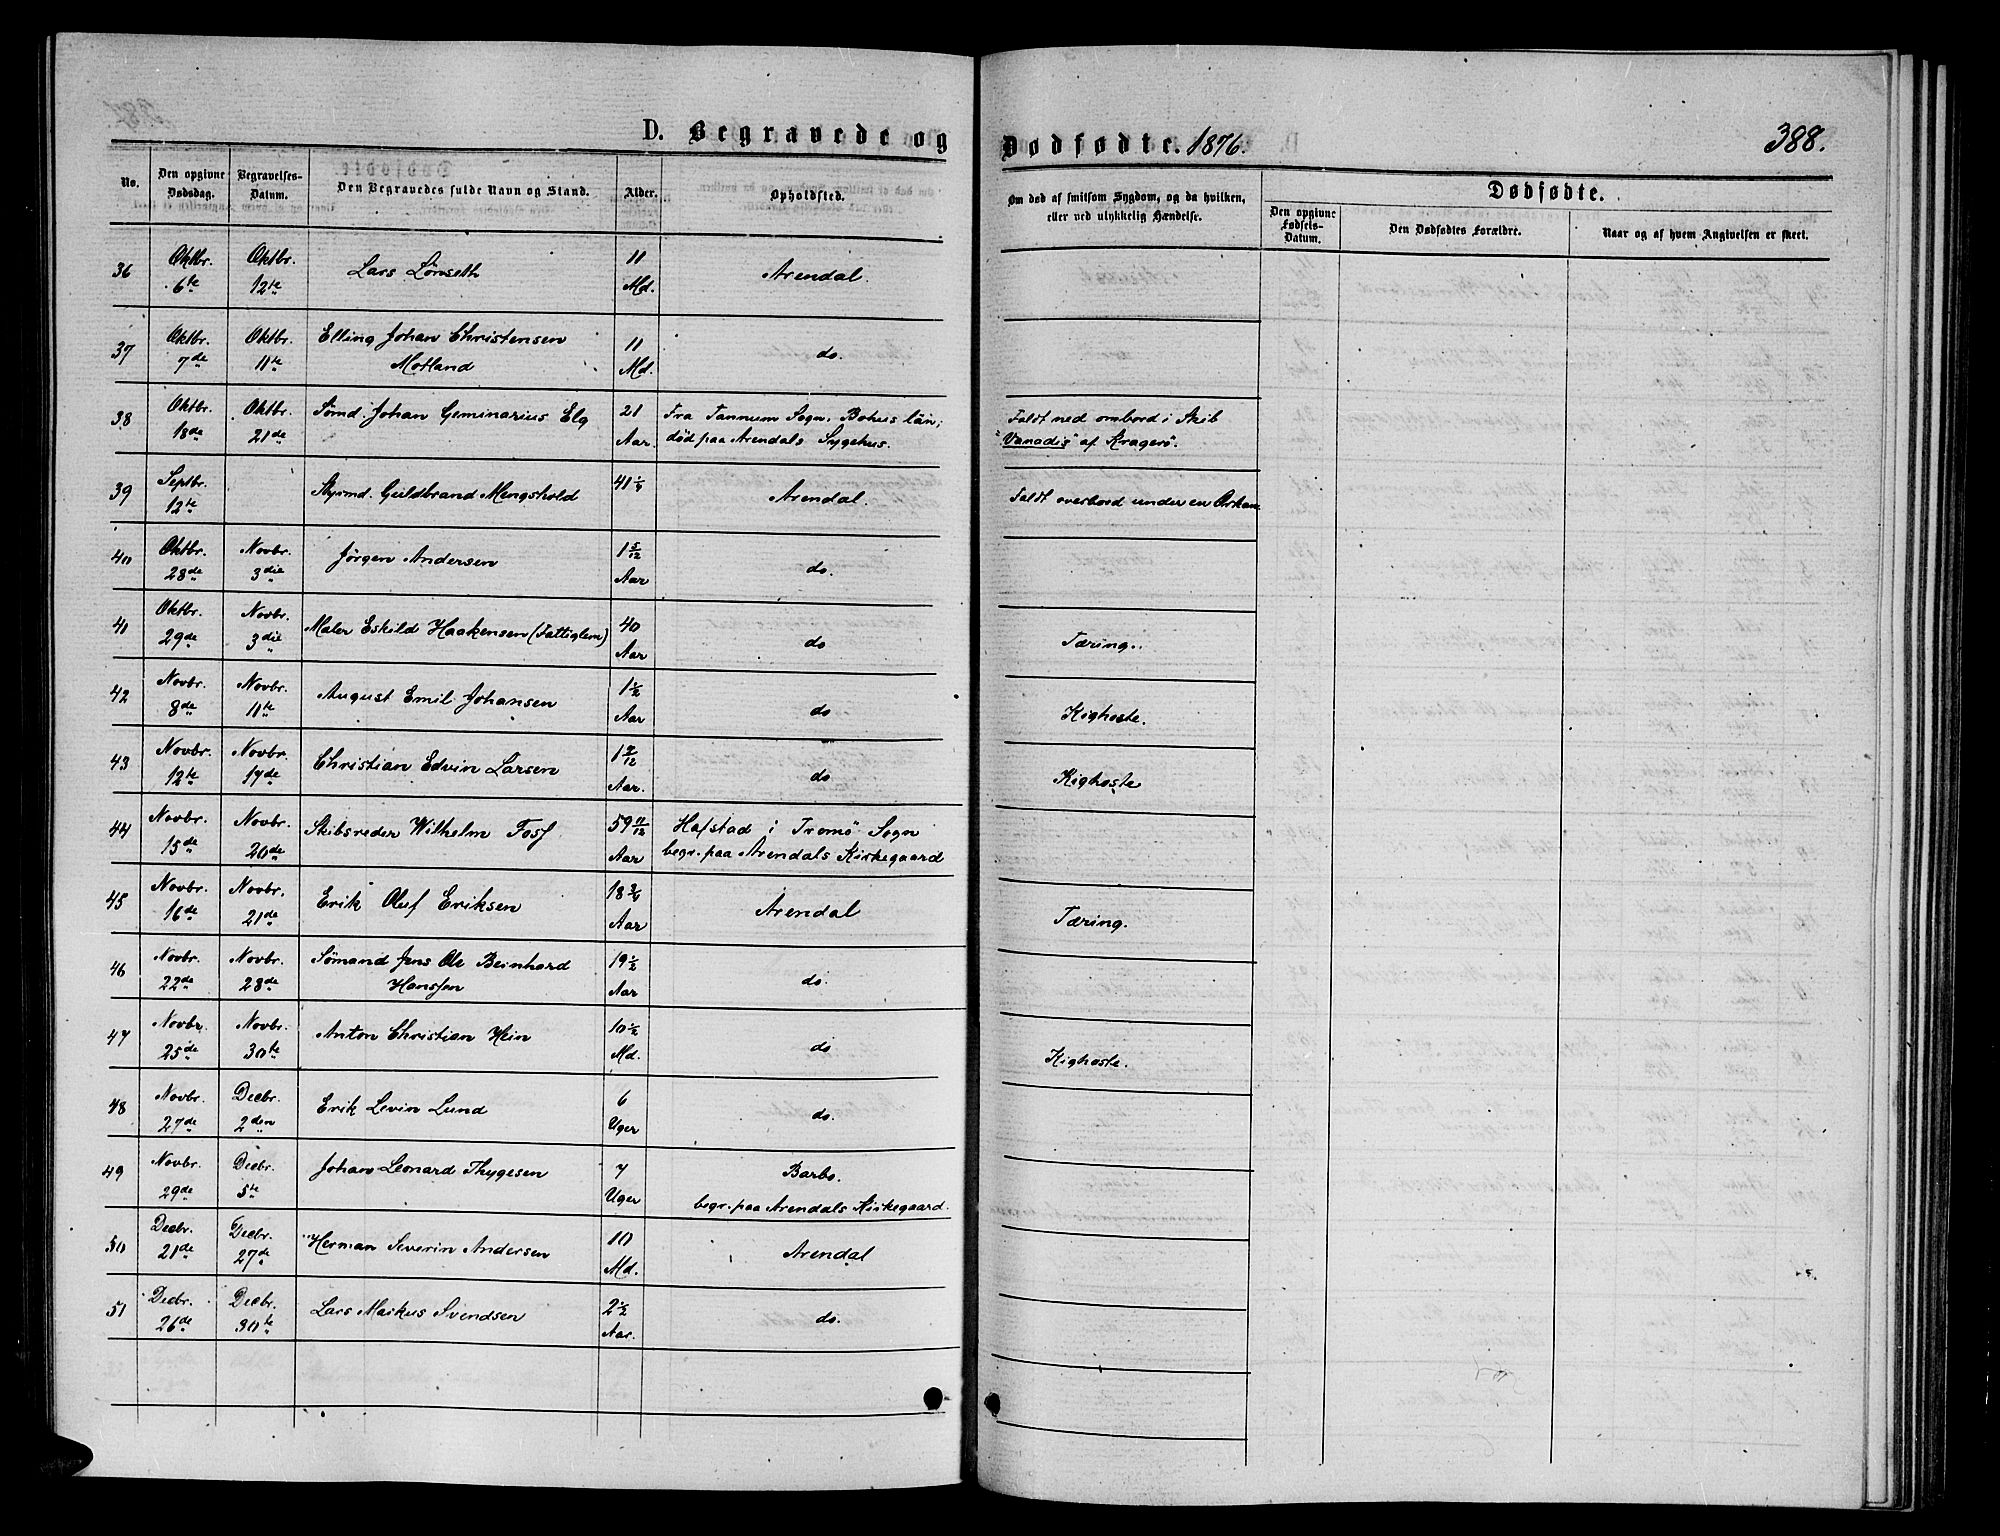 D. Begravede og
Dødfødte. 1876.
388.
No.
Den opgivne Dødsdag.
Begravelses-Datum.
Den Begravedes fulde Navn og Stand.
Alder.
Opholdsted.
Om død af smitsom Sygdom, og da hvilken,
eller ved ulykkelig Hændelse.
Dødfødte.
Den opgivne Fødsels-Datum.
Den Dødfødtes Forældre.
Naar og af hvem Angivelsen er skeet.
36 Oktbr. 6te Oktbr. 12te Lars Lønseth 11 Md. Arendal.
37 Oktbr. 7de Oktbr. 11te Elling Johan Christensen
Motland 11 Md. do.
38 Oktbr. 18de Oktbr. 21de Sømd. Johan Geminarius Elg 21 Aar. Fra Tannum Sogn, Bohus län;
død paa Arendals Sygehus.
Faldt ned ombord i Skib
"Vanadis" af Kragerø.
39 Septbr. 12te Styrmd. Guldbrand Mengshold 41 1/4 Arendal. Faldt overbord under en Orkan
40 Oktbr. 28de Novbr. 3die Jörgen Andersen 1 5/12 Aar do.
41 Oktbr. 29de Novbr. 3die Maler Eskild Haakensen (Fattiglem) 40 Aar do Tæring.
42 Novbr. 8de Novbr. 11te August Emil Johansen 1 1/2 Aar do Kighoste.
43 Novbr. 12te Novbr. 17de Christian Edvin Larsen Aar. do Kighoste
44 Novbr. 15de Novbr. 20de Skibsreder Wilhelm Foss 59 11/12 Aar Hafstad i Tromø Sogn
begr. paa Arendals Kirkegaard
45 Novbr. 16de Novbr. 21de Erik Oluf Eriksen 18 3/4 Aar Arendal Tæring.
46 Novbr. 22de Novbr. 28de Sömand Jens Ole Beinhard
Hanssen 19 1/2 Aar do.
47 Novbr 25de Novbr. 30te Anton Christian Hein 10 1/2 Md. do Kighoste.
48 Novbr. 27de Decbr. 2den Erik Levin Lund 6 Uger do.
49 Novbr. 29de Decbr. 5te Johan Leonard Thygesen 7 Uger Barbo.
begr. paa Arendals Kirkegaard.
50 Decbr. 21de Decbr. 27de Herman Severin Andersen 10 Md. Arendal
51 Decbr. 26de Decbr. 30te Lars Markus Svendsen 2 1/2 Aar. do.